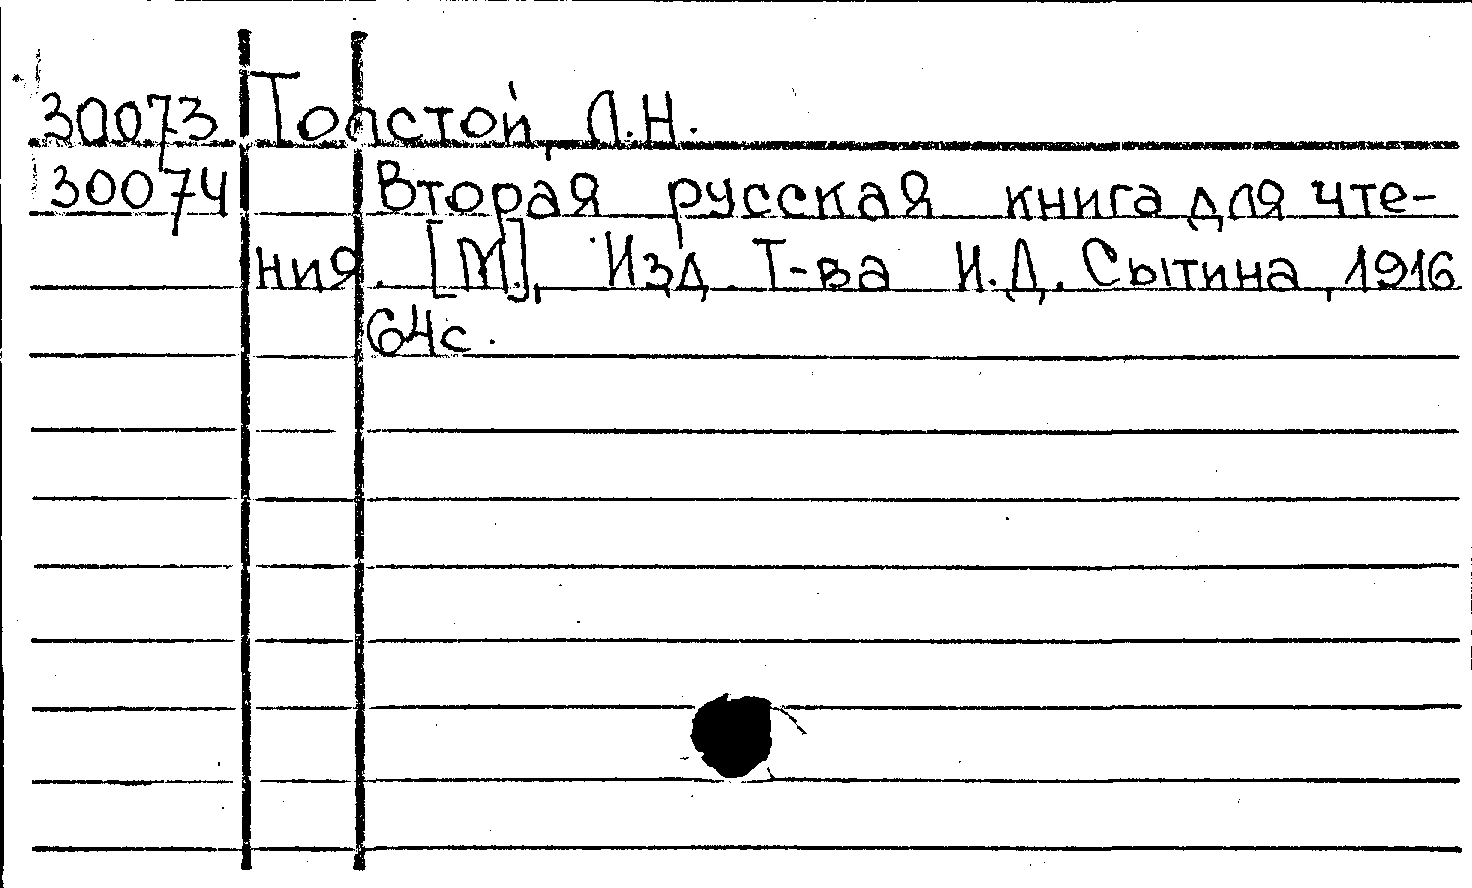 30073 Толстой, Л.Н.
30074 Вторая русская книга для чте-
ния. [М.], Изд. Т-ва И.Д. Сытина, 1916
64с.